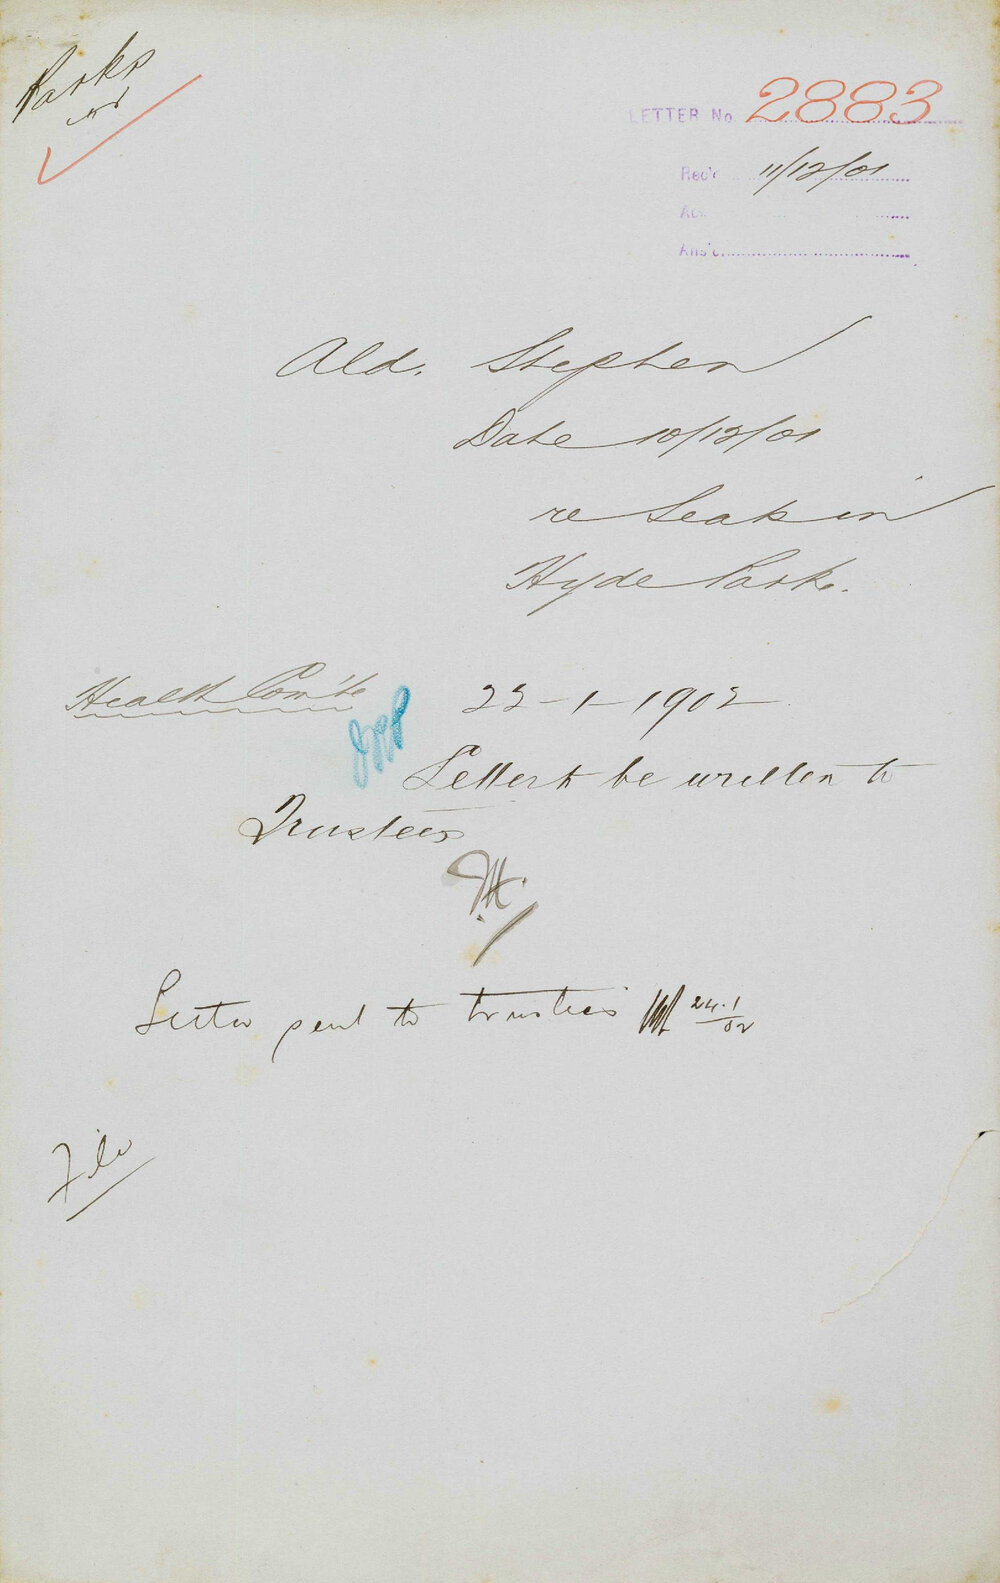 Parks
LETTER No. 2883
Rec'd 11/12/01
Ack
Ans'd
Ald. Stephen
Date 10/12/01
re Leak in
Hyde Park.
Health Com'te 22-1-1902
Letter to be written to
Trustees
Letter sent to trustees 24.1/02
File